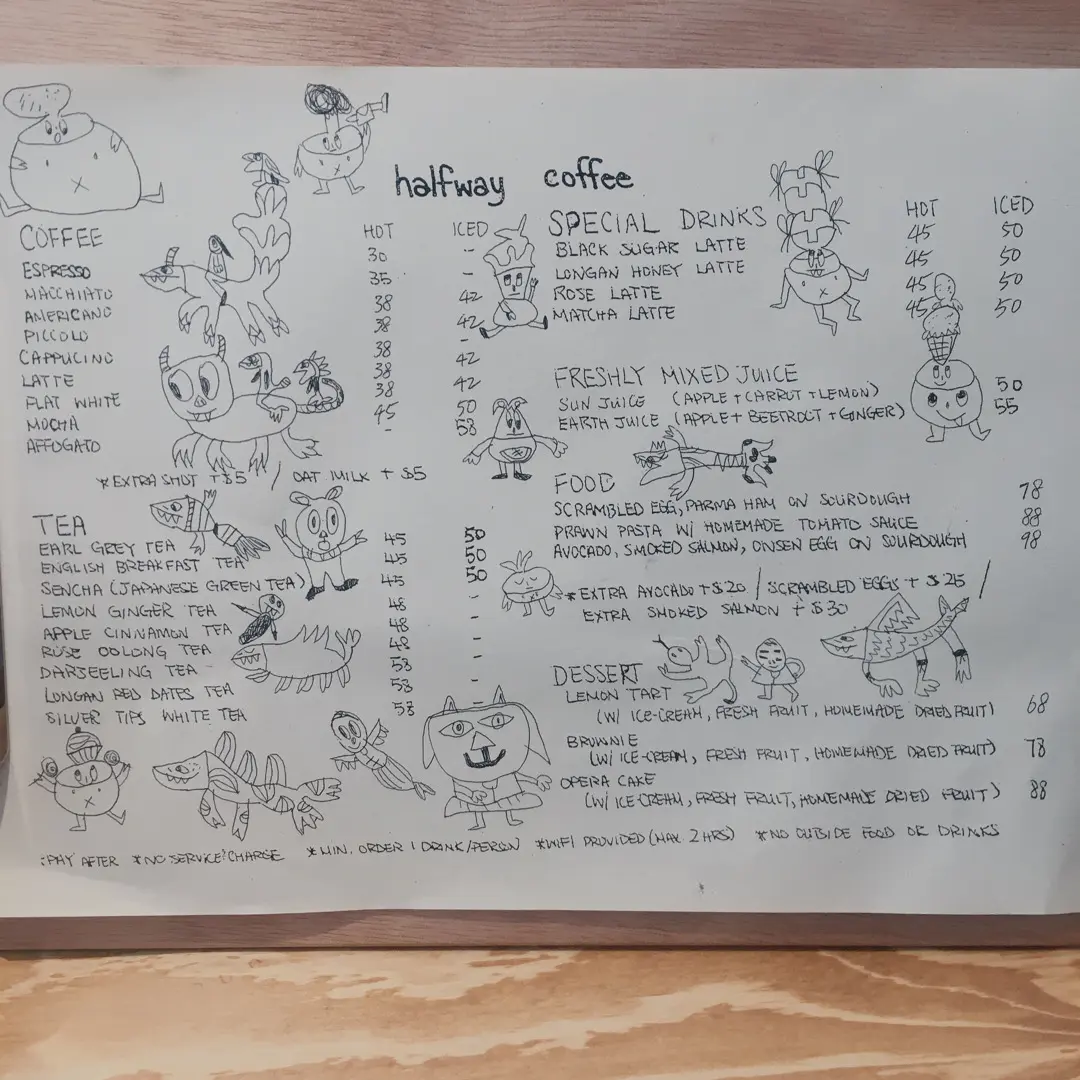 halfway coffee
COFFEE HOT ICED
ESPRESSO 30 -
MACCHIATO 35 -
AMERICANO 38 42
PICCOLO 38 42
CAPPUCINO 38 -
LATTE 38 42
FLAT WHITE 38 42
MOCHA 45 50
AFFOGATO - 58
*EXTRA SHOT +$5 / OAT MILK + $5
TEA
EARL GREY TEA 45 50
ENGLISH BREAKFAST TEA 45 50
SENCHA (JAPANESE GREEN TEA) 45 50
LEMON GINGER TEA 48 -
APPLE CINNAMON TEA 48 -
ROSE OOLONG TEA 48 -
DARJEELING TEA 58 -
LONGAN RED DATES TEA 58 -
SILVER TIPS WHITE TEA 58 -
SPECIAL DRINKS HOT ICED
BLACK SUGAR LATTE 45 50
LONGAN HONEY LATTE 45 50
ROSE LATTE 45 50
MATCHA LATTE 45 50
FRESHLY MIXED JUICE
SUN JUICE (APPLE + CARROT + LEMON) 50
EARTH JUICE (APPLE + BEETROOT + GINGER) 55
FOOD
SCRAMBLED EGG, PARMA HAM ON SOURDOUGH 78
PRAWN PASTA W/ HOMEMADE TOMATO SAUCE 88
AVOCADO, SMOKED SALMON, ONSEN EGG ON SOURDOUGH 98
*EXTRA AVOCADO +$20 / SCRAMBLED EGGS + $25 /
EXTRA SMOKED SALMON + $30
DESSERT
LEMON TART
(W/ ICE-CREAM, FRESH FRUIT, HOMEMADE DRIED FRUIT) 68
BROWNIE
(W/ ICE-CREAM, FRESH FRUIT, HOMEMADE DRIED FRUIT) 78
OPERA CAKE
(W/ ICE-CREAM, FRESH FRUIT, HOMEMADE DRIED FRUIT) 88
*PAY AFTER *NO SERVICE CHARGE *MIN. ORDER 1 DRINK/PERSON *WIFI PROVIDED (MAX. 2 HRS) *NO OUTSIDE FOOD OR DRINKS